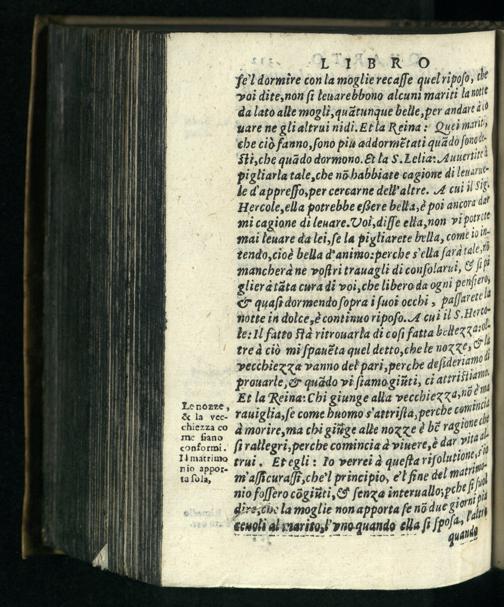 LIBRO
se'l dormire con la moglie recasse quel riposo, che
voi dite, non si levarebbono alcuni mariti la notte
da lato alle mogli, quãtunque belle, per andare à co
uare ne gli altrui nidi. Et la Reina: Quei mariti,
che ciò fanno, sono piu addormẽtati quãdo sono de-
sti, che quãdo dormono. Et la S. Lelia: Auuertite à
pigliarla tale, che nõ habbiate cagione di leuarue-
le d'appresso, per cercarne dell'altre. A cui il Sig.
Hercole, ella potrebbe eßere bella, è poi ancora dar
mi cagione di leuare. Voi, disse ella, non vi potrete
mai leuare da lei, se la pigliarete bella, come io in-
tendo, cioè bella d'animo: perche s'ella sarà tale, nõ
mancherà ne vostri trauagli di consolarui, & si pi
glierà tãta cura di voi, che libero da ogni pensiero,
& quasi dormendo sopra i suoi occhi, passarete la
notte in dolce, è continuo riposo. A cui il S. Herco-
le: Il fatto stà ritrouarla di cosi fatta bellezza: ol-
tre à ciò mi spauẽta quel detto, che le nozze, & la
vecchiezza vanno del pari, perche desideriamo di
prouarle, & quãdo vi siamo giũti, ci attristiamo.
Et la Reina: Chi giunge alla vecchiezza, nõ è ma
rauiglia, se come huomo s'attrista, perche comincia
à morire, ma chi giũge alle nozze è bẽ ragione che
si rallegri, perche comincia à viuere, è dar vita al-
trui. Et egli: Io verrei à questa risolutione, s'io
m'assicurassi, che'l principio, e'l fine del matrimo-
nio fossero cõgiũti, & senza interuallo; pche si suol
dire, che la moglie non apporta se nõ due giorni pia
ceuoli al marito, l'vno quando ella si sposa, l'altro
quando
Le nozze,
& la vec-
chiezza co
me siano
conformi.
Il matrimo
nio appor-
ta sola,